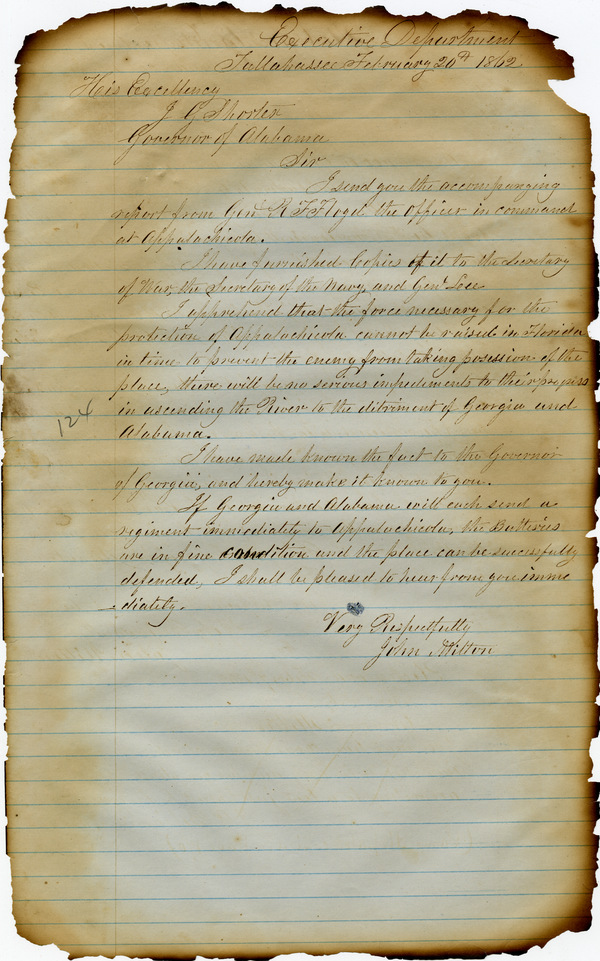 Executive Department
Tallahassee February 20th 1862
His Excellency
J G Shorter
Governor of Alabama
Sir
I send you the accompanying
report from Genl R F Floyd the Officer in command
at Appalachicola.
I have furnished Copies of it to the Secretary
of War, the Secretary of the Navy, and Genl Lee
I apprehend that the force necessary for the
protection of Appalachicola cannot be raised in Florida
in time to prevent the enemy from taking posession of the
place, there will be no serious impediments to their progress
in ascending the River to the ditriment of Georgia and
Alabama.
124
I have made known the fact to the Governor
of Georgia, and hereby make it known to you.
If Georgia and Alabama will each send a
regiment immediately to Appalachicola, the Batteries
are in fine condition and the place can be successfully
defended, I shall be pleased to hear from you imme
-diately.
Very Respectfully
John Milton